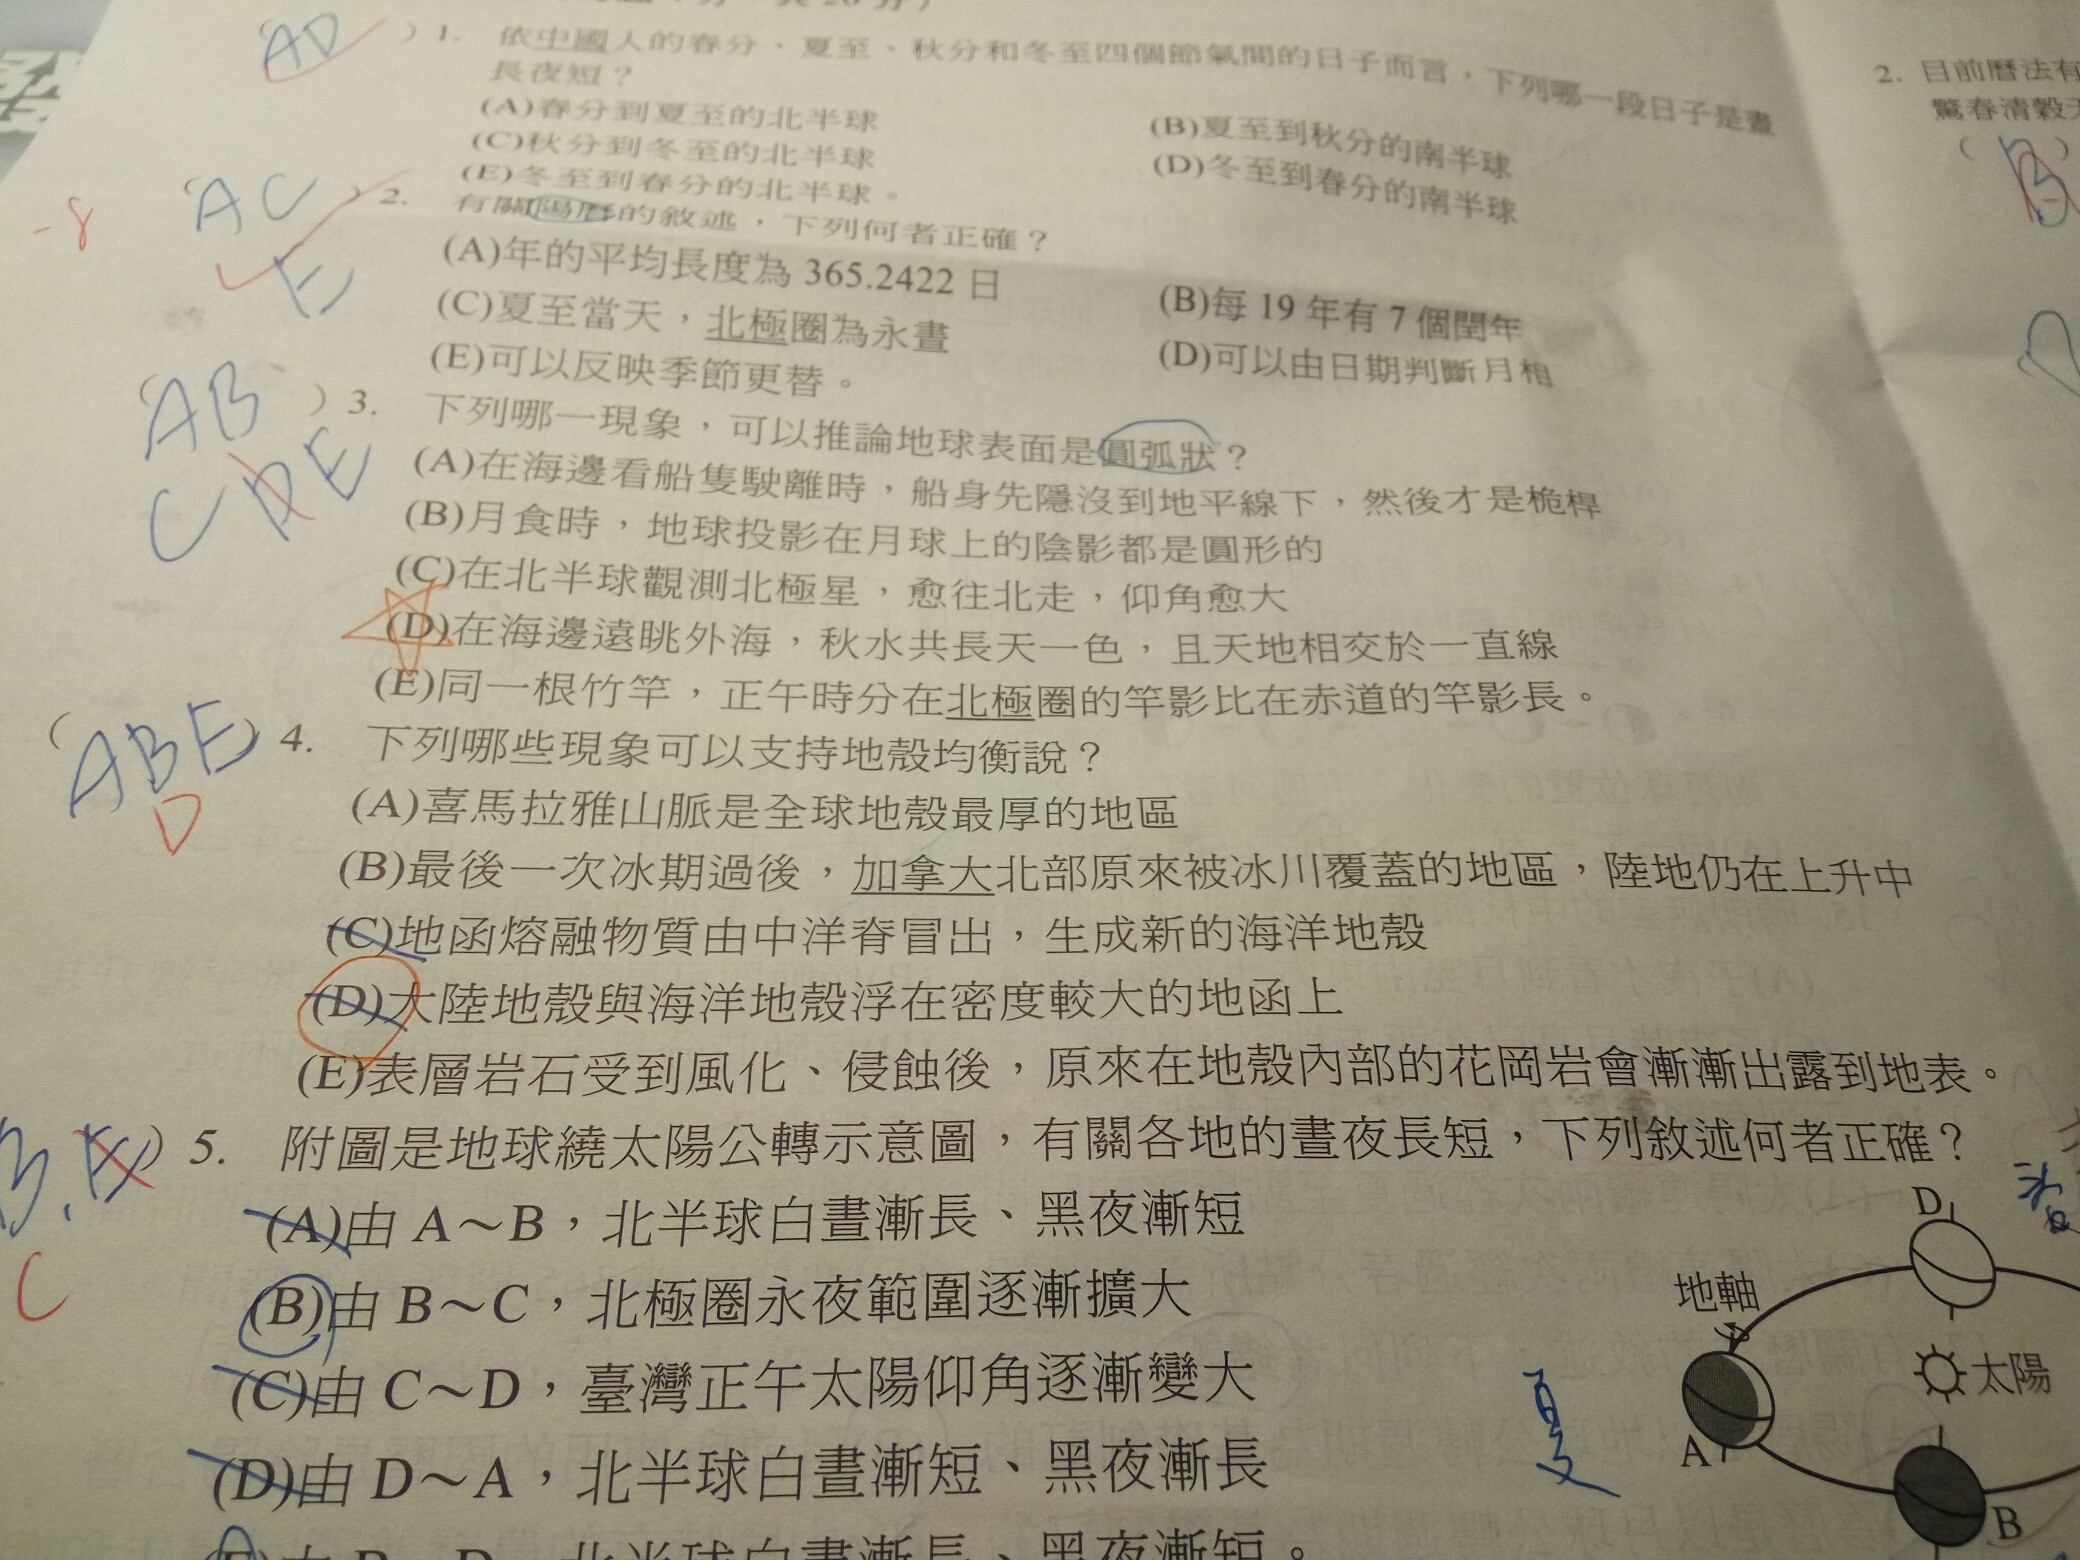 AD
)1. 依中國人的春分、夏至、秋分和冬至四個節氣間的日子而言，下列哪一段日子是晝
長夜短？
(A)春分到夏至的北半球
(B)夏至到秋分的南半球
(C)秋分到冬至的北半球
(D)冬至到春分的南半球
(E)冬至到春分的北半球。
-8
AC
E
2. 有關陽曆的敘述，下列何者正確？
(A)年的平均長度為 365.2422 日
(B)每 19 年有 7 個閏年
(C)夏至當天，北極圈為永晝
(D)可以由日期判斷月相
(E)可以反映季節更替。
AB
CDE
)3. 下列哪一現象，可以推論地球表面是圓弧狀？
(A)在海邊看船隻駛離時，船身先隱沒到地平線下，然後才是桅桿
(B)月食時，地球投影在月球上的陰影都是圓形的
(C)在北半球觀測北極星，愈往北走，仰角愈大
(D)在海邊遠眺外海，秋水共長天一色，且天地相交於一直線
(E)同一根竹竿，正午時分在北極圈的竿影比在赤道的竿影長。
(ABE)
D
4. 下列哪些現象可以支持地殼均衡說？
(A)喜馬拉雅山脈是全球地殼最厚的地區
(B)最後一次冰期過後，加拿大北部原來被冰川覆蓋的地區，陸地仍在上升中
(C)地函熔融物質由中洋脊冒出，生成新的海洋地殼
(D)大陸地殼與海洋地殼浮在密度較大的地函上
(E)表層岩石受到風化、侵蝕後，原來在地殼內部的花岡岩會漸漸出露到地表。
B.E
C
)5. 附圖是地球繞太陽公轉示意圖，有關各地的晝夜長短，下列敘述何者正確？
(A)由 A～B，北半球白晝漸長、黑夜漸短
(B)由 B～C，北極圈永夜範圍逐漸擴大
(C)由 C～D，臺灣正午太陽仰角逐漸變大
(D)由 D～A，北半球白晝漸短、黑夜漸長
北半球白晝漸長、黑夜漸短。
D
春
地軸
太陽
夏
A
B
2. 目前曆法有
驚春清穀天
B